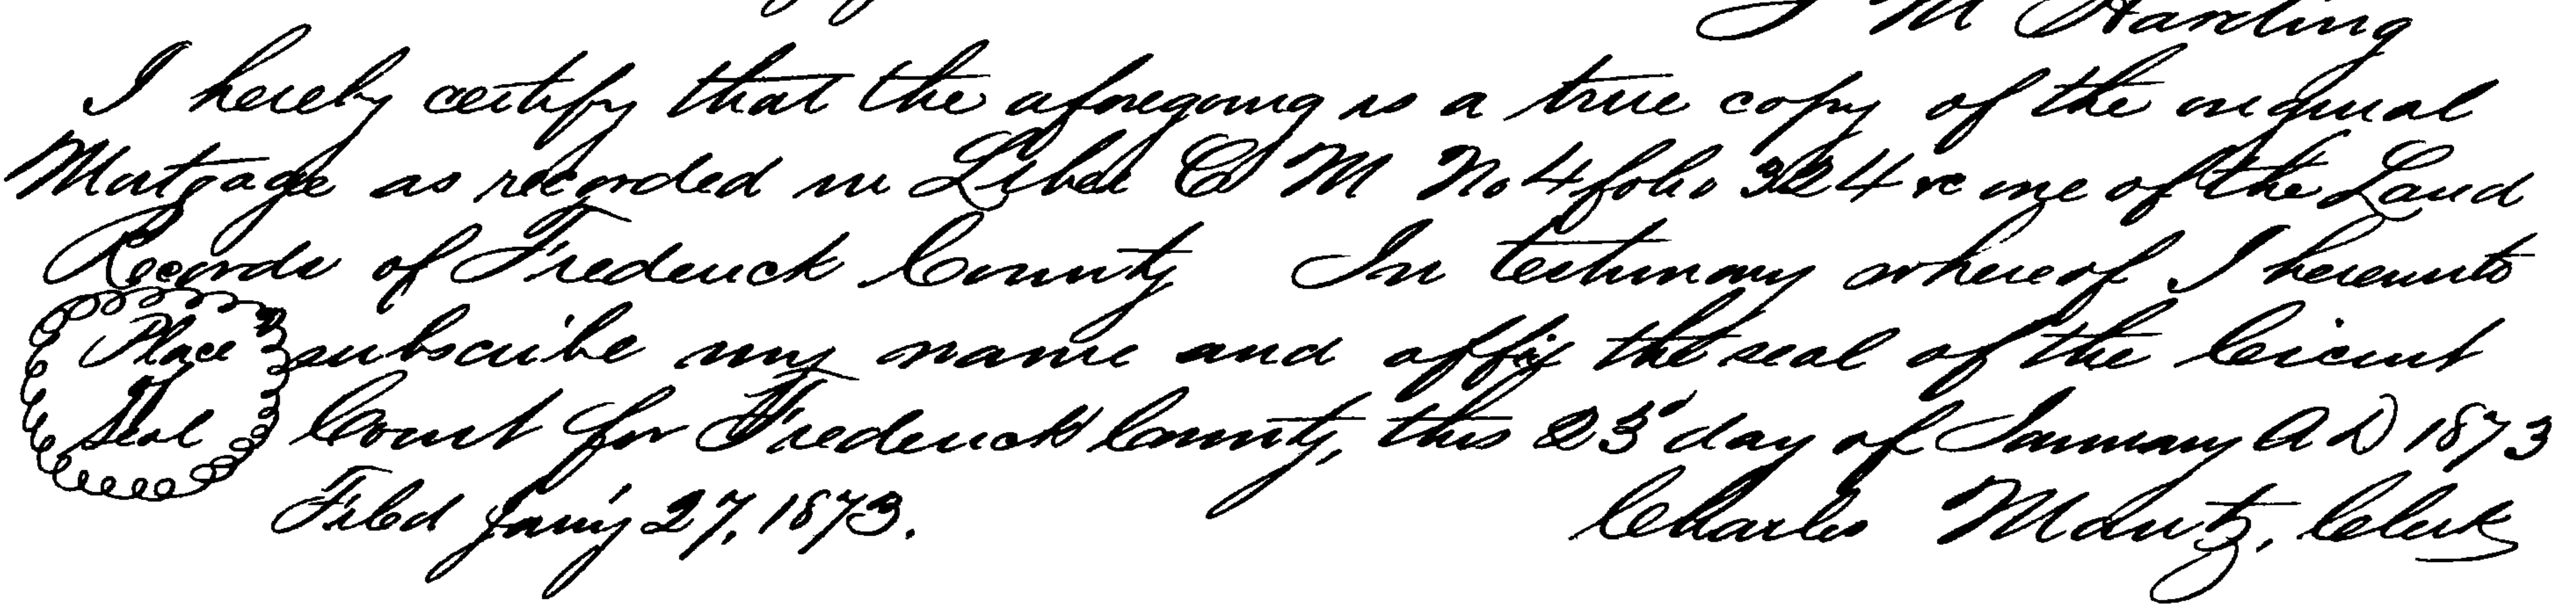 J M Harding
I hereby certify that the aforegoing is a true copy of the original
Mortgage as recorded in Liber C M No 4 folio 324 &c one of the Land
Records of Frederick County In testimony whereof I hereunto
Place subscribe my name and affix the seal of the Circuit
of
Seal Court for Frederick County, this 23d day of January A D 1873
Filed Jany 27, 1873. Charles Mantz, Clerk